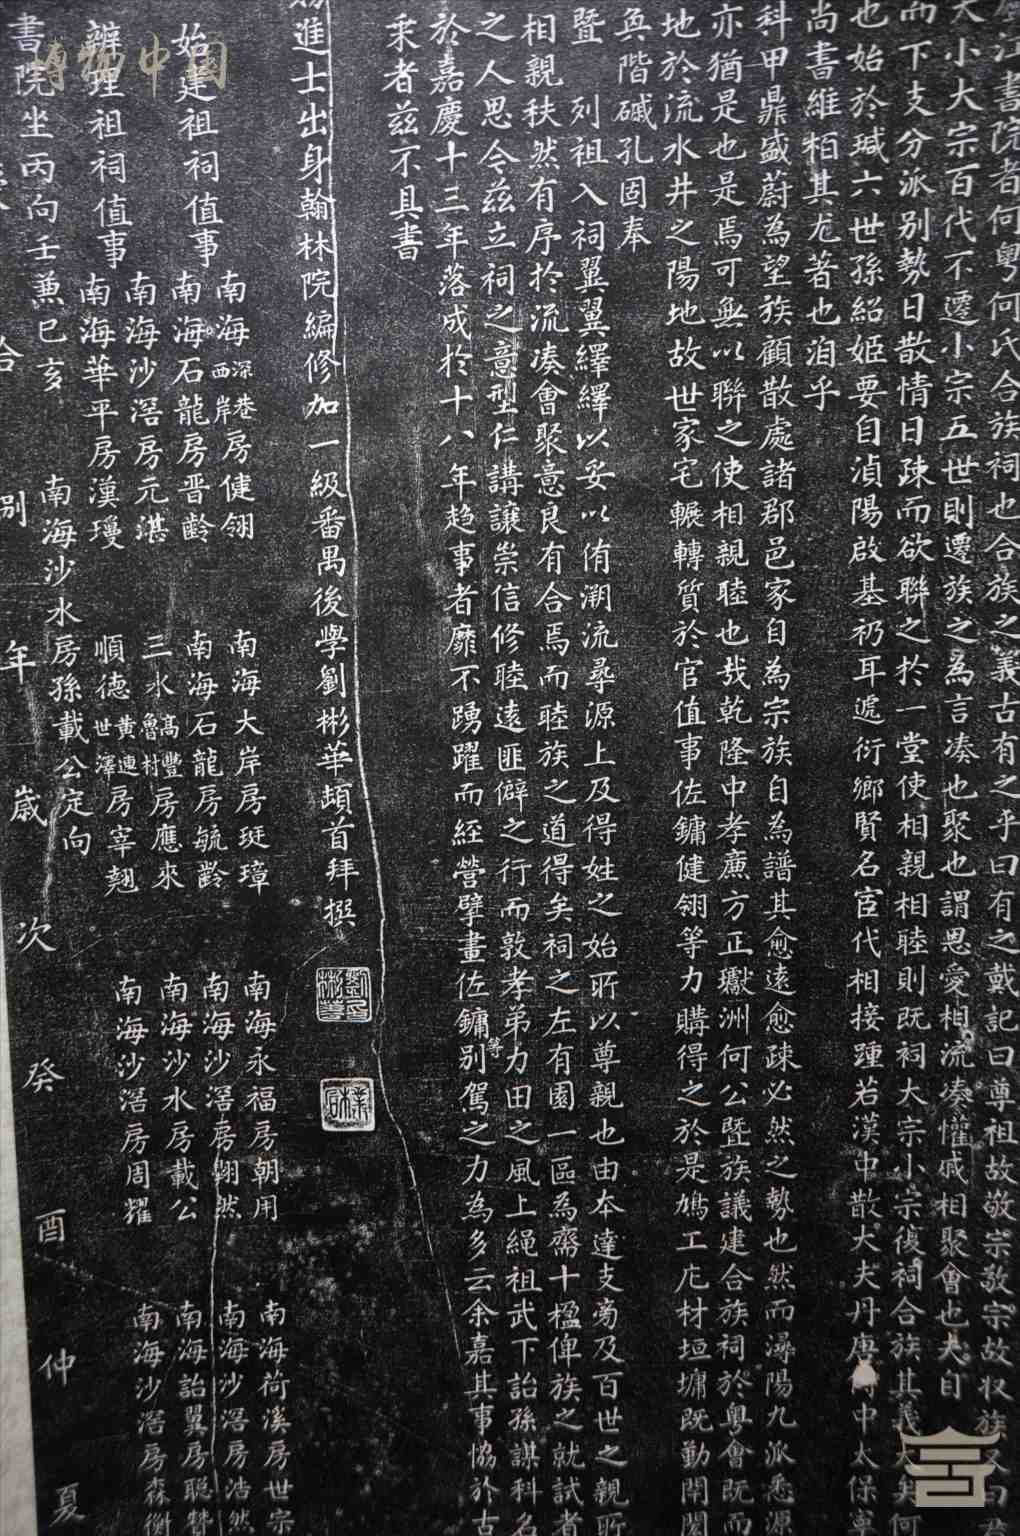 廬江書院者何粵何氏合族祠也合族之義古有之乎曰有之戴記曰尊祖故敬宗敬宗故收族又曰
大小大宗百代不遷小宗五世則遷族之為言湊也聚也謂恩愛相流湊懽戚相聚會也夫自
而下支分派別勢日散情日疎而欲聯之於一堂使相親相睦則既祠大宗小宗復祠合族其義大矣何
也始於瑊六世孫紹姬要自湞陽啟基礽耳遞衍鄉賢名宦代相接踵若漢中散大夫丹唐 中太保寧
尚書維柏其尤著也洎乎
科甲鼎盛蔚為望族顧散處諸郡邑家自為宗族自為譜其愈遠愈疎必然之勢也然而潯陽九派悉源
亦猶是也是焉可無以聯之使相親睦也哉乾隆中孝廉方正瓛洲何公暨族議建合族祠於粵會既而
地於流水井之陽地故世家宅輾轉質於官值事佐鏞健翎等力購得之於是鳩工庀材垣墉既勤閈閎
奐階磩孔固奉
暨 列祖入祠翼翼繹繹以妥以侑溯流尋源上及得姓之始所以尊親也由本達支旁及百世之親所
相親秩然有序於流湊會聚意良有合焉而睦族之道得矣祠之左有園一區為齋十楹俾族之就試者
之人思令茲立祠之意型仁講讓崇信修睦遠匪僻之行而敦孝弟力田之風上繩祖武下詒孫謀科名
於嘉慶十三年落成於十八年趋事者靡不踴躍而經營擘畫佐鏞等別駕之力為多云余嘉其事協於古
来者茲不具書
進士出身翰林院編修加一級番禺後學劉彬華頓首拜撰
始建祖祠值事
南海深巷西岸房健翎 南海大岸房珽璋 南海永福房朝用 南海荷溪房世宗
南海石龍房晋齡 南海石龍房毓齡 南海沙滘房翱然 南海沙滘房浩然
辦理祖祠值事
南海沙滘房元湛 三水高豐魯村房應來 南海沙水房載公 南海詒翼房聰
南海華平房漢瓊 順德黃連世澤房宰翹 南海沙滘房周耀 南海沙滘房森衡
書院坐丙向壬兼巳亥 南海沙水房孫載公定向
年歲次癸酉仲夏
博物中国